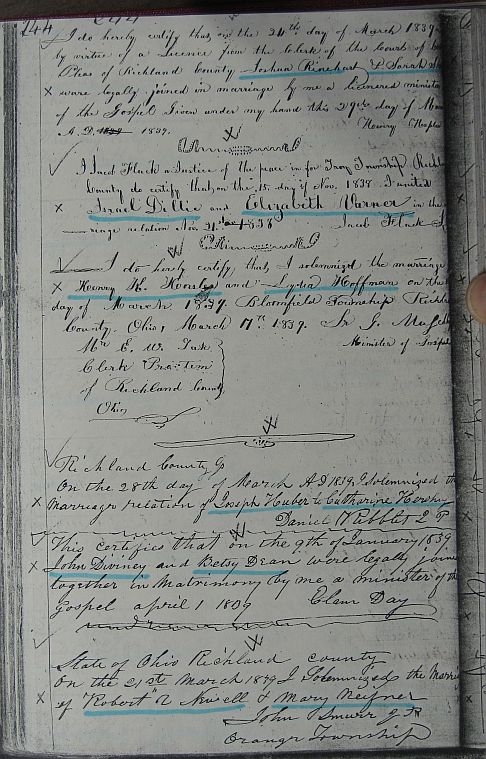 144
I do hereby certify that on the 24th day of March 1839
by virtue of a Licence from the Clerk of the Court of
Pleas of Richland County Joshua Rinehart & Sarah
x ware legally joined in marriage by me a licenced minister
of the Gospel Given under my hand this 29th day of
A. D. 1839 1839. Henry
I Jacob Fluck a Justice of the peace in for Troy Township
County do certify that on the 15 day of Nov. 1838 I united
x Israel Dillie and Elizabeth Varner in the
riage relation Nov. 21st 1838 Jacob Fluck
I do hereby certify that I solemnized the marriage
x Henry K. and Lydia Hoffman on the
day of March 1839. Bloomfield Township
County. Ohio, March 17th 1839.
Mr E. W. Minister of Gospel
Clerk Pro-tem
of Richland County
Ohio
Richland County
On the 28th day of March AD 1839 I Solemnized the
x marriage relation of Joseph Huber to Catharine
Daniel
This certifies that on the 9th of January 1839
x John Diviney and Betsy Dean were legally joined
together in Matrimony by me a minister of the
Gospel april 1 1809 Elam Day
State of Ohio Richland County
On the 21st March 1839 I Solemnized the
x of Robert R Newell & Mary
John
Orange Township